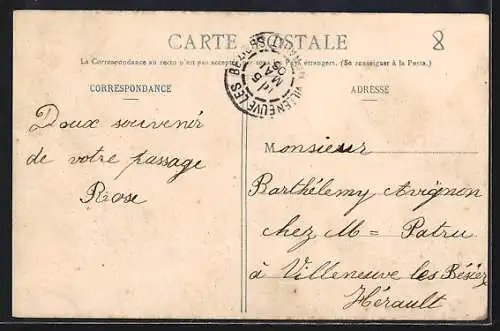 CARTE POSTALE
8
La Correspondance au recto n'est pas acceptée par tous les Pays étrangers. (Se renseigner à la Poste.)
CORRESPONDANCE
ADRESSE
VILLENEUVE LES BEZIERS
Doux souvenir
de votre passage
Rose
Monsieur
Barthélemy Avignon
chez M= Patru
à Villeneuve les Béziez
Hérault